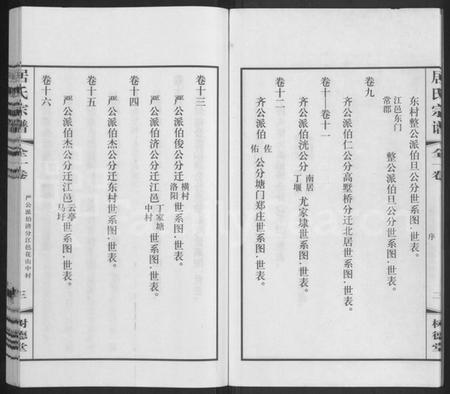 居氏宗谱
全一卷
序
二
树德堂
东村整公派伯旦公分世系图.世表。
卷九
江邑东门
常郡
整公派伯旦公分世系图.世表。
齐公派伯仁公分高墅桥分迁北居世系图.世表。
卷十—卷十一
齐公派伯洸公分
南居
丁堰
尤家埭世系图.世表。
卷十二
齐公派伯
佐
佑
公分塘门郑庄世系图.世表。
居氏宗谱
全一卷
严公派伯济分江邑花山中村
三
树德堂
卷十三
严公派伯俊公分迁
横村
洛阳
世系图.世表。
卷十四
严公派伯济公分迁江邑
丁家塘
中村
世系图.世表。
卷十五
严公派伯杰公分迁东村世系图.世表。
卷十六
严公派伯杰公分迁江邑
云亭
马圩
世系图.世表。